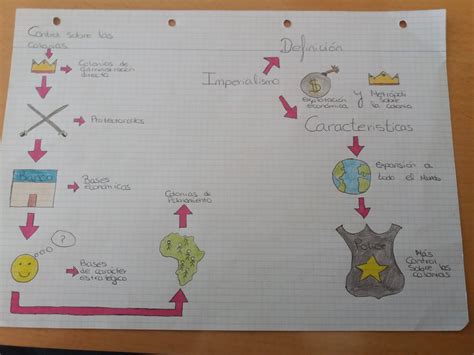 Control sobre las
colonias
Colonias de
administración
directa
Protectorados
Bases
económicos
?
Bases
de carácter
estratégico
Colonias de
poblamiento
Definición
Imperialismo
$
Explotación
económica
y
Metrópoli
sobre
la colonia
Características
expansión a
todo el Mundo
Police
Más
control
sobre las
colonias